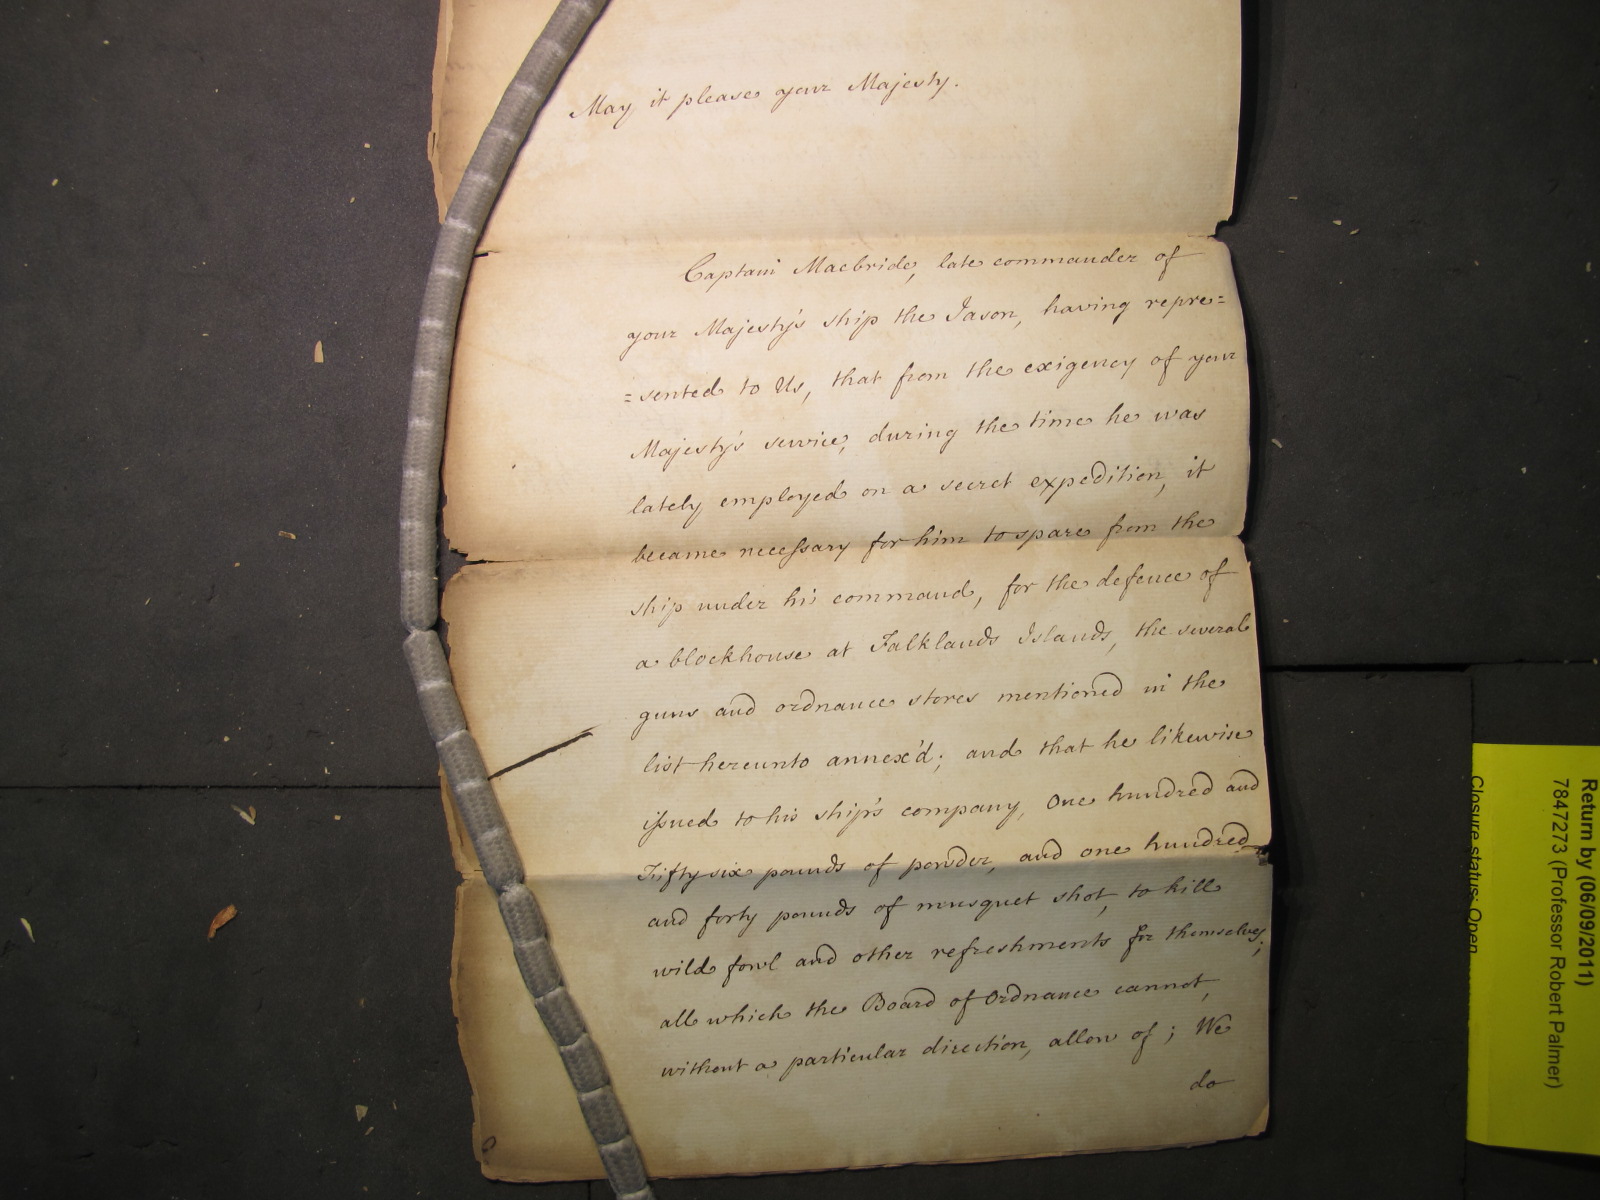 May it please your Majesty.
Captain Macbride, late commander of
your Majesty's ship the Jason, having repre=
=sented to Us, that from the exigency of your
Majesty's service, during the time he was
lately employed on a secret expedition, it
became necessary for him to spare from the
ship under his command, for the defence of
a blockhouse at Falklands Islands, the several
guns and ordnance stores mentioned in the
list hereunto annex'd; and that he likewise
issued to his ship's company, One hundred and
Fifty six pounds of powder, and one hundred
and forty pounds of musquet shot, to kill
wild fowl and other refreshments for themselves;
all which the Board of Ordnance cannot,
without a particular direction, allow of; We
do
Return by (06/09/2011)
7847273 (Professor Robert Palmer)
Closure status: Open